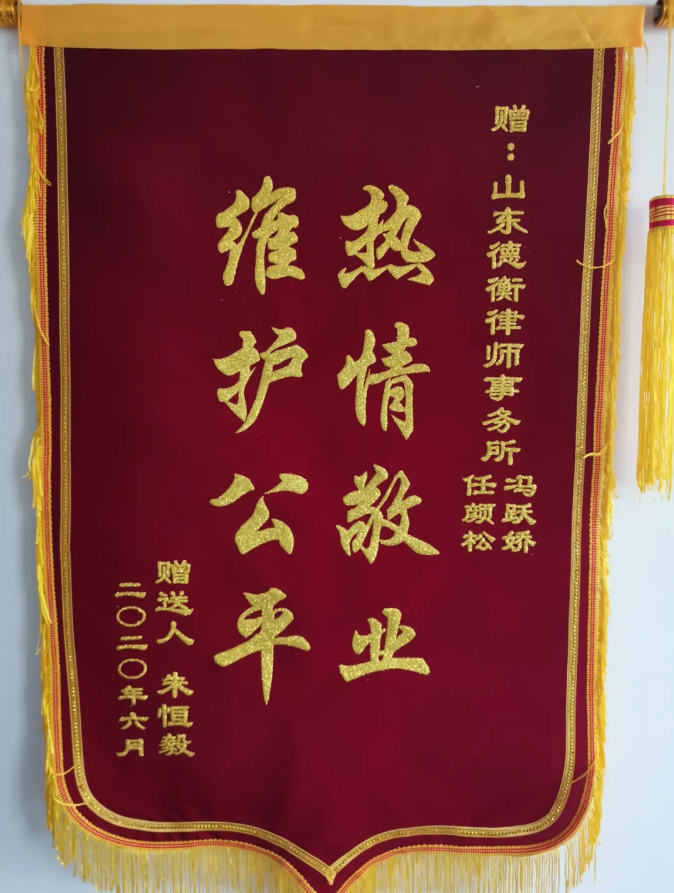 赠：山东德衡律师事务所
冯跃娇
任颜松
热情敬业
维护公平
赠送人 朱恒毅
二〇二〇年六月